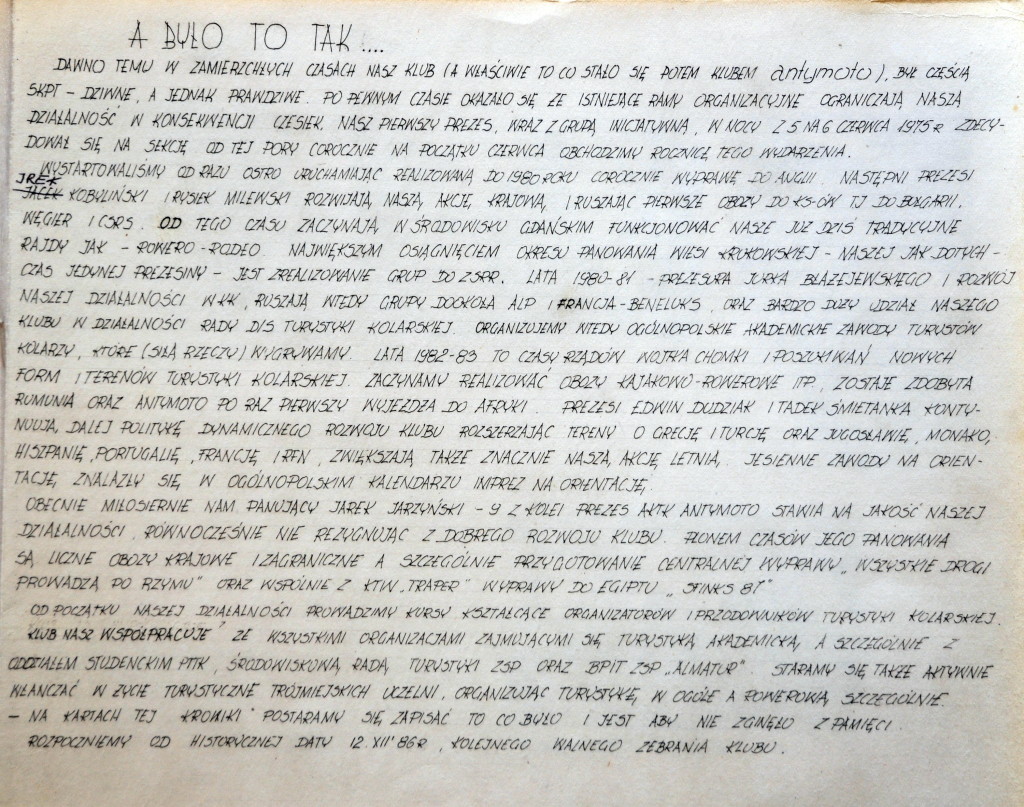 A BYŁO TO TAK ....
DAWNO TEMU W ZAMIERZCHŁYCH CZASACH NASZ KLUB (A WŁAŚCIWIE TO CO STAŁO SIĘ POTEM KLUBEM antymoto), BYŁ CZĘŚCIĄ
SKPT – DZIWNE, A JEDNAK PRAWDZIWE. PO PEWNYM CZASIE OKAZAŁO SIĘ ŻE ISTNIEJĄCE RAMY ORGANIZACYJNE OGRANICZAJĄ NASZĄ
DZIAŁALNOŚĆ W KONSEKWENCJI CZESIEK, NASZ PIERWSZY PREZES, WRAZ Z GRUPĄ INICJATYWNĄ, W NOCY Z 5 NA 6 CZERWCA 1975 R ZDECY-
DOWAŁ SIĘ NA SEKCJĘ OD TEJ PORY COROCZNIE NA POCZĄTKU CZERWCA OBCHODZIMY ROCZNICĘ TEGO WYDARZENIA.
WYSTARTOWALIŚMY OD RAZU OSTRO URUCHAMIAJĄC REALIZOWANĄ DO 1980 ROKU COROCZNIE WYPRAWĘ DO ANGLII. NASTĘPNI PREZESI
IREK
JACEK KOBYLIŃSKI I RYSIEK MILEWSKI ROZWIJAJĄ NASZĄ AKCJĘ KRAJOWĄ, I RUSZAJĄC PIERWSZE OBOZY DO KS-ÓW TJ DO BUŁGARII,
WĘGIER I CSRS. OD TEGO CZASU ZACZYNAJĄ, W ŚRODOWISKU GDAŃSKIM FUNKCJONOWAĆ NASZE JUŻ DZIŚ TRADYCYJNE
RAJDY JAK – ROWERO-RODEO. NAJWIĘKSZYM OSIĄGNIĘCIEM OKRESU PANOWANIA WIESI KRUKOWSKIEJ – NASZEJ JAK DOTYCH-
CZAS JEDYNEJ PREZESINY – JEST ZREALIZOWANIE GRUP DO ZSRR. LATA 1980-81 – PREZESURA JURKA BŁAŻEJEWSKIEGO I ROZWÓJ
NASZEJ DZIAŁALNOŚCI W KK, RUSZAJĄ WTEDY GRUPY DOOKOŁA ALP I FRANCJA-BENELUKS, ORAZ BARDZO DUŻY UDZIAŁ NASZEGO
KLUBU W DZIAŁALNOŚCI RADY D/S TURYSTYKI KOLARSKIEJ. ORGANIZUJEMY WTEDY OGÓLNOPOLSKIE AKADEMICKIE ZAWODY TURYSTÓW
KOLARZY, KTÓRE (SIŁĄ RZECZY) WYGRYWAMY. LATA 1982-83 TO CZASY RZĄDÓW WOJTKA CHOMKI I POSZUKIWAŃ NOWYCH
FORM I TERENÓW TURYSTYKI KOLARSKIEJ. ZACZYNAMY REALIZOWAĆ OBOZY KAJAKOWO-ROWEROWE ITP, ZOSTAJE ZDOBYTA
RUMUNIA ORAZ ANTYMOTO PO RAZ PIERWSZY WYJEŻDŻA DO AFRYKI. PREZESI EDWIN DUDZIAK I TADEK ŚMIETANKA KONTY-
NUUJĄ DALEJ POLITYKĘ DYNAMICZNEGO ROZWOJU KLUBU ROZSZERZAJĄC TERENY O GRECJĘ I TURCJĘ ORAZ JUGOSŁAWIĘ, MONAKO,
HISZPANIĘ, PORTUGALIĘ, FRANCJĘ I RFN, ZWIĘKSZAJĄ TAKŻE ZNACZNIE NASZĄ AKCJĘ LETNIĄ. JESIENNE ZAWODY NA ORIEN-
TACJĘ ZNALAZŁY SIĘ W OGÓLNOPOLSKIM KALENDARZU IMPREZ NA ORIENTACJĘ.
OBECNIE MIŁOSIERNIE NAM PANUJĄCY JAREK JARZYŃSKI – 9 Z KOLEI PREZES AKTK ANTYMOTO STAWIA NA JAKOŚĆ NASZEJ
DZIAŁALNOŚCI, RÓWNOCZEŚNIE NIE REZYGNUJĄC Z DOBREGO ROZWOJU KLUBU. PLONEM CZASÓW JEGO PANOWANIA
SĄ LICZNE OBOZY KRAJOWE I ZAGRANICZNE A SZCZEGÓLNIE PRZYGOTOWANIE CENTRALNEJ WYPRAWY „WSZYSTKIE DROGI
PROWADZĄ PO RZYMU" ORAZ WSPÓLNIE Z KTW „TRAPER" WYPRAWY DO EGIPTU „SFINKS 87"
OD POCZĄTKU NASZEJ DZIAŁALNOŚCI PROWADZIMY KURSY KSZTAŁCĄCE ORGANIZATORÓW I PRZODOWNIKÓW TURYSTYKI KOLARSKIEJ.
KLUB NASZ WSPÓŁPRACUJE ZE WSZYSTKIMI ORGANIZACJAMI ZAJMUJĄCYMI SIĘ TURYSTYKĄ AKADEMICKĄ, A SZCZEGÓLNIE Z
ODDZIAŁEM STUDENCKIM PTTK, ŚRODOWISKOWĄ RADĄ TURYSTYKI ZSP ORAZ BPIT ZSP „ALMATUR". STARAMY SIĘ TAKŻE AKTYWNIE
WŁANCZAĆ W ŻYCIE TURYSTYCZNE TRÓJMIEJSKICH UCZELNI, ORGANIZUJĄC TURYSTYKĘ W OGÓLE A ROWEROWĄ SZCZEGÓLNIE.
– NA KARTACH TEJ KRONIKI POSTARAMY SIĘ ZAPISAĆ TO CO BYŁO I JEST ABY NIE ZGINĘŁO Z PAMIĘCI.
ROZPOCZNIEMY OD HISTORYCZNEJ DATY 12.XII'86R, KOLEJNEGO WALNEGO ZEBRANIA KLUBU.